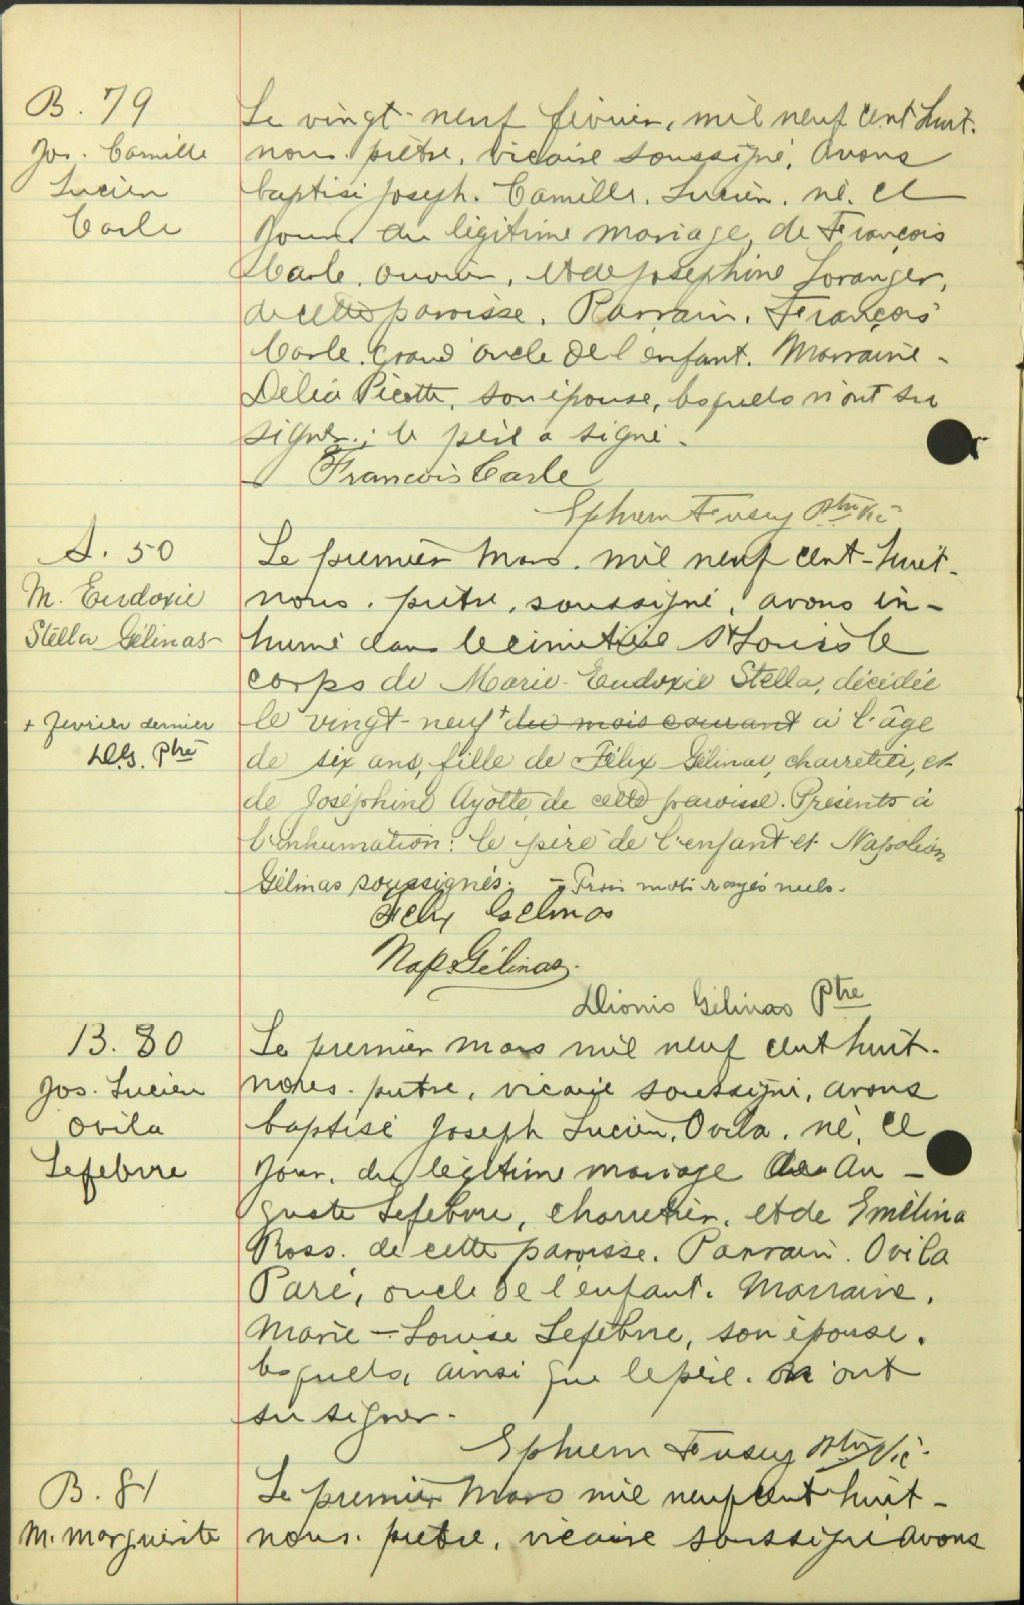 B. 79
Jos. Camille
Lucien
Carle
Le vingt-neuf février, mil neuf cent huit.
nous. prêtre, vicaire soussigné, avons
baptisé Joseph. Camille. Lucien. né. ce
jour. du légitime mariage, de François
Carle, ouvrier, et de Joséphine Loranger,
de cette paroisse. Parrain. François
Carle. grand'oncle de l'enfant. Marraine -
Délia Picotte, son épouse, lesquels n'ont su
signer.; le père a signé.
François Carle
Ephrem Fusey Ptre Vic
S. 50
M. Eudoxie
Stella Gélinas
+ fevrier dernier
D.G. Ptre
Le premier Mars. mil neuf cent-huit-
nous. prêtre, soussigné, avons in-
humé dans le cimetière St Louis le
corps de Marie-Eudoxie Stella, décédée
le vingt-neuf + du mois courant à l'âge
de six ans, fille de Félix Gélinas, charretier, et
de Joséphine Ayotte, de cette paroisse. Présents à
l'inhumation: le père de l'enfant et Napoléon
Gélinas soussignés. - Trois mots rayés nuls.
Felix Gelinas
Nap. Gélinas.
Dionis Gélinas Ptre
B. 80
Jos. Lucien
Ovila
Lefebvre
Le premier mars mil neuf cent huit.
nous. prêtre, vicaire soussigné, avons
baptisé Joseph Lucien, Ovila. né, ce
jour. du légitime mariage de Au-
guste Lefebvre, charretier. et de Emélina
Ross. de cette paroisse. Parrain. Ovila
Paré, oncle de l'enfant. Marraine.
Marie-Louise Lefebvre, son épouse.
lesquels, ainsi que le père. n'ont
su signer.
Ephrem Fusey Ptre Vic.
B. 81
M. Marguerite
Le premier Mars mil neuf cent huit-
nous. prêtre, vicaire soussigné avons